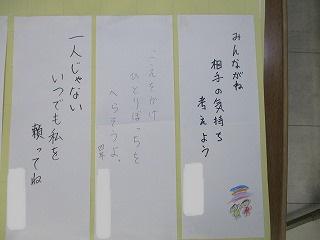 みんながね
相手の気持ち
考えよう
こえをかけ
ひとりぼっちを
へらそうよ。
一人じゃない
いつでも私を
頼ってね